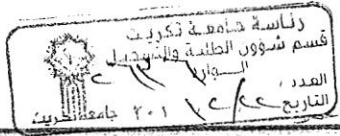 رئاسة جامعة تكريت
قسم شؤون الطلبة والتسجيل
الـواردة
العدد :
التاريخ ٢٠١ / ٢ / ٢٢
جامعة تكريت